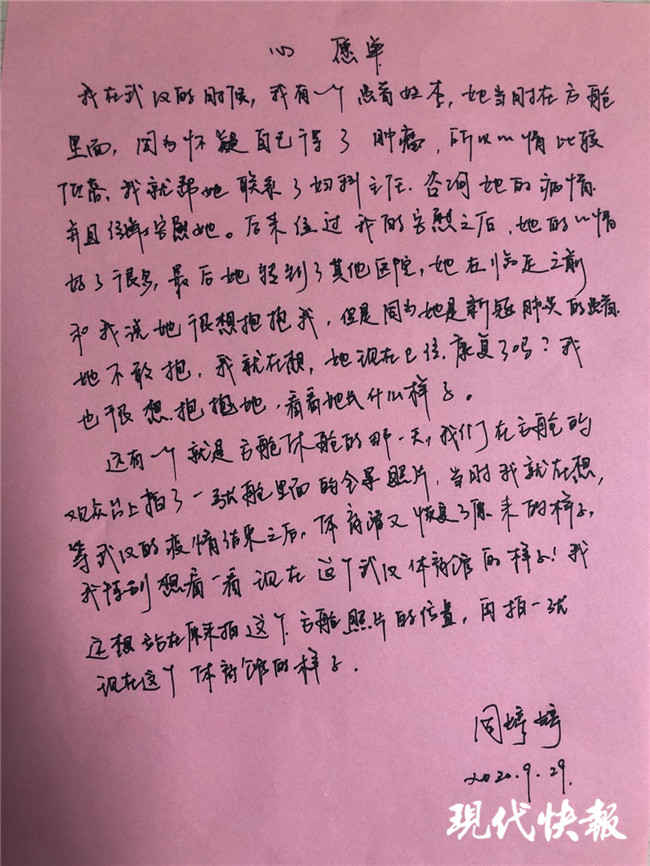 心愿单
我在武汉的时候，我有一个患者姓李，她当时在方舱
里面，因为怀疑自己得了肿瘤，所以心情比较
低落，我就帮她联系了妇科主任，咨询她的病情
并且任性安慰她。后来经过我的安慰之后，她的心情
好了很多，最后她转到了其他医院，她在临走之前
和我说她很想抱抱我，但是因为她是新冠肺炎的患者
她不敢抱，我就在想，她现在已经康复了吗？我
也很想抱抱她，看看她长什么样子。
还有一个就是方舱休舱的那一天，我们在方舱的
观众台上拍了一张舱里面的全景照片，当时我就在想，
等武汉的疫情结束之后，体育馆又恢复了原来的样子，
我特别想看一看现在这个武汉体育馆的样子！我
还想站在原来拍这个方舱照片的位置，再拍一张
现在这个体育馆的样子。
周婷婷
2020.9.29
现代快报